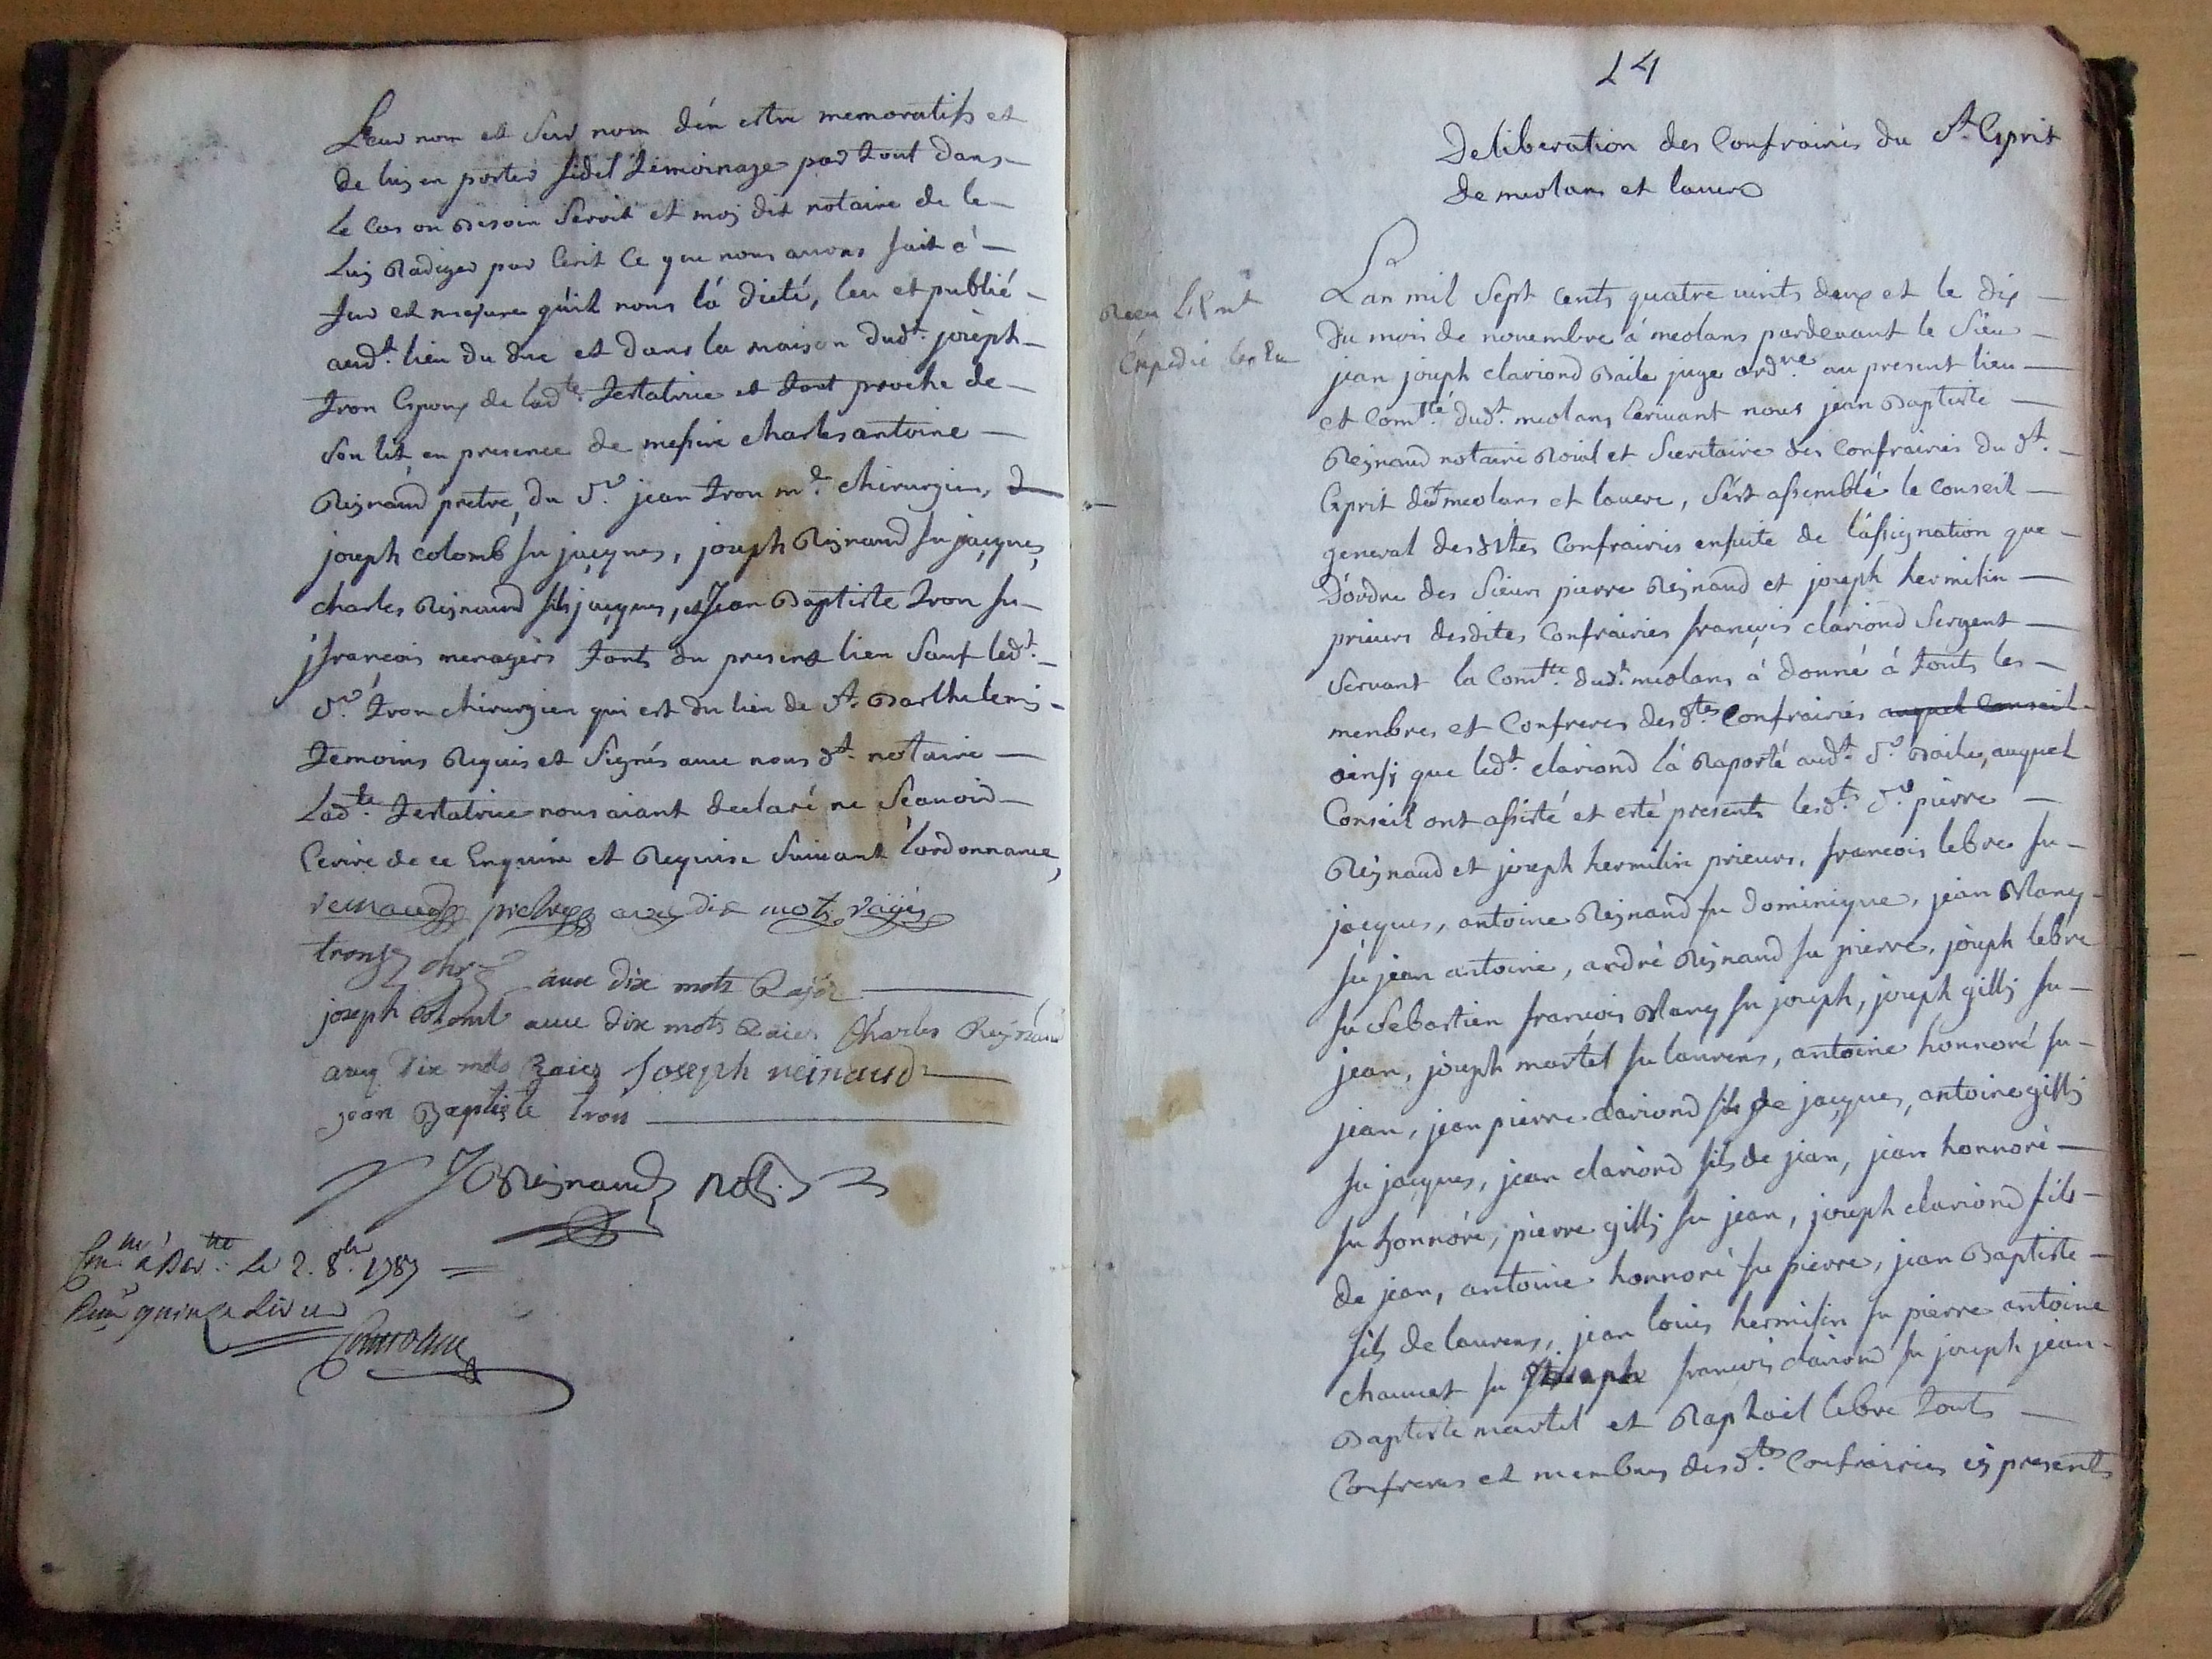 Leur nom et sur nom d'én estre memoratifs et
de luy en porter fidel temoinage par tout dans
le cas on besoin seroit et moy dit notaire de le
luy Radiger par Ecrit Ce que nous avons fait a
fur et mesure qu'il nous lá dicté, leu et publié
audt. lieu du duc et dans la maison dudt. joseph
tron Epoux de ladte. testatrice et tout proche de
son lit en presence de messire charles antoine
Reynaud pretre, du Sr. jean tron me. chirurgien,
joseph colomb fu jacques, joseph Reynaud fu jacques,
charles Reynaud fils jacques, et jean Baptiste tron fu
francois menagers touts du present lieu sauf ledt.
Sr. tron chirurgien qui est du lieu de St. Barthelemy
temoins Requis et Signés avec nous dt. notaire
Ladte. testatrice nous aiant declaré ne Scavoir
Ecrire de ce Enquire et Requise Suivant l'ordonnance,
reinaud pretre avec dix mots raijés
tron chr avec dix mots Rajés
joseph colomb avec dix mots Raies Charles Reynaud
avec dix mots Raies Joseph reinaud
jean Baptiste tron
JB Reynaud not.
le 2. 8bre. 1787
Reçu quinze livres
14
Deliberation des Confrairies du St. Esprit
de meolans et lavers
Lan mil Sept Cents quatre vints deux et le dix
du mois de novembre á meolans pardevant le Sieur
jean joseph clariond Baile juge ordre. au present lieu
et Comté. dudt. meolans Ecrivant nous jean Baptiste
Reynaud notaire Roial et Secretaire des Confrairies du St.
Esprit dudt meolans et lavers, S'est assemblé le Conseil
general desdites Confrairies ensuite de l'assignation que
d'ordre des Sieurs pierre Reynaud et joseph hermelin
prieurs desdites Confrairies françois clariond Sergent
Servant la Comté. dudt. meolans á donné á touts les
menbres et Confreres desdtes Confrairies auquel Conseil
ainsi que ledt. clariond lá Raporté audt. Sr. Baile, auquel
Conseil ont assisté et esté presents lesdts. Srs pierre
Reynaud et joseph hermelin prieurs, francois lebre fu
jacques, antoine Reynaud fu dominique, jean Many
fu jean antoine, andré Reynaud fu pierre, joseph lebre
fu Sebastien francois Many fu joseph, joseph gilly fu
jean, joseph martel fu laurens, antoine honnoré fu
jean, jean pierre clariond fils de jacques, antoine gilly
fu jacques, jean clariond fils de jean, jean honnoré
fu honnoré, pierre gilly fu jean, joseph clariond fils
de jean, antoine honnoré fu pierre, jean Baptiste
fils de laurens, jean louis hermelin fu pierre antoine
chauvet fu francois clariond fu joseph jean
Baptiste martel et Raphael lebre touts
Confreres et membres desdtes Confrairies icy presents